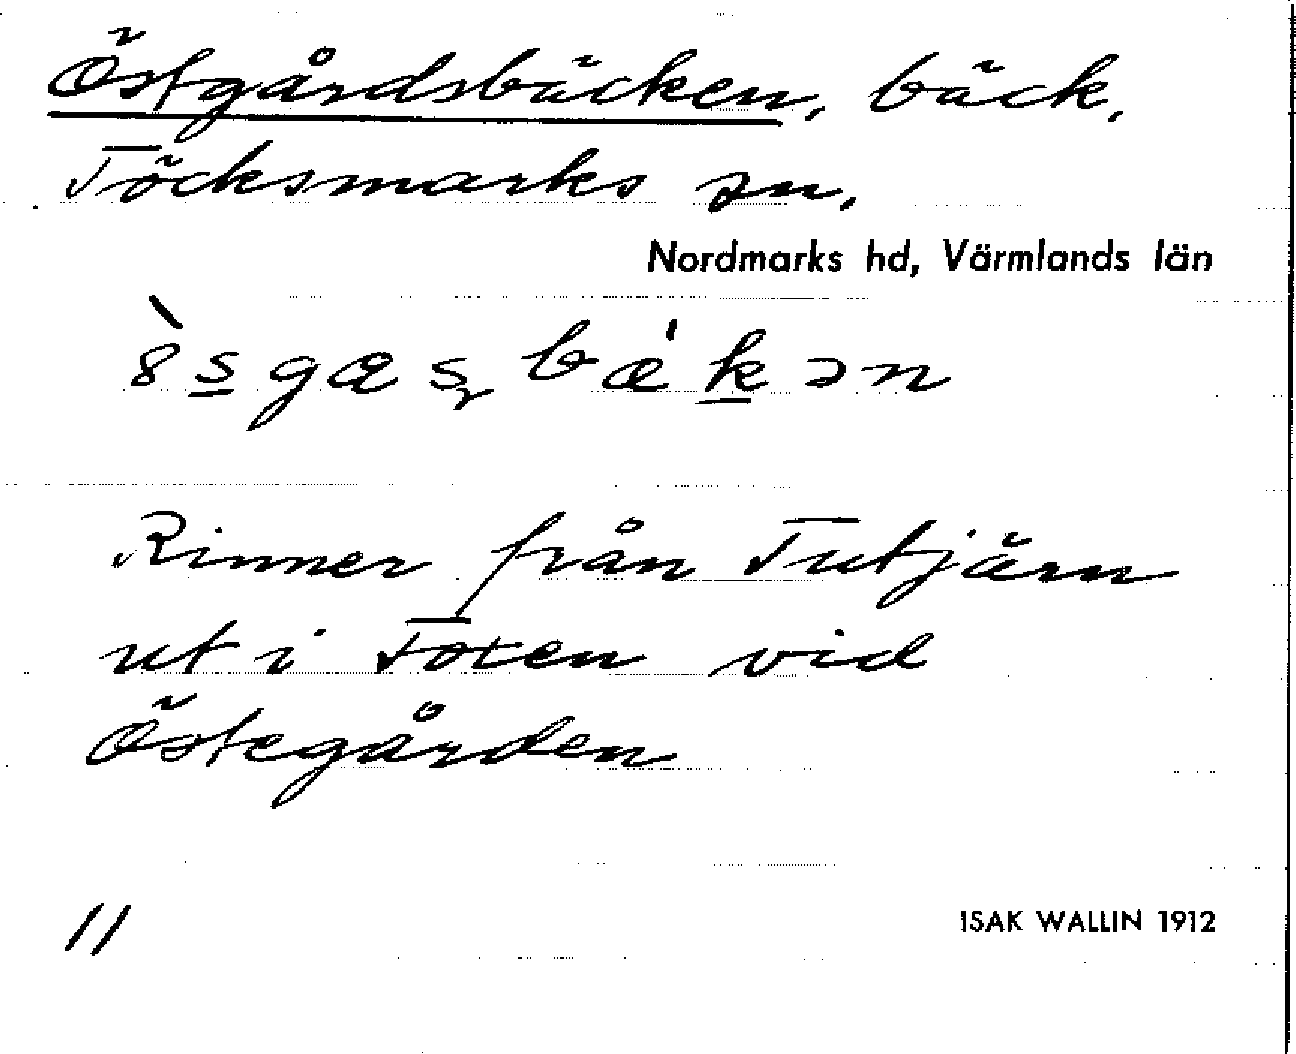 Östgårdsbäcken, bäck,
Töcksmarks sn,
Nordmarks hd, Värmlands län
Rinner från Tutjärn
ut i Foxen vid
Östegården
11
ISAK WALLIN 1912